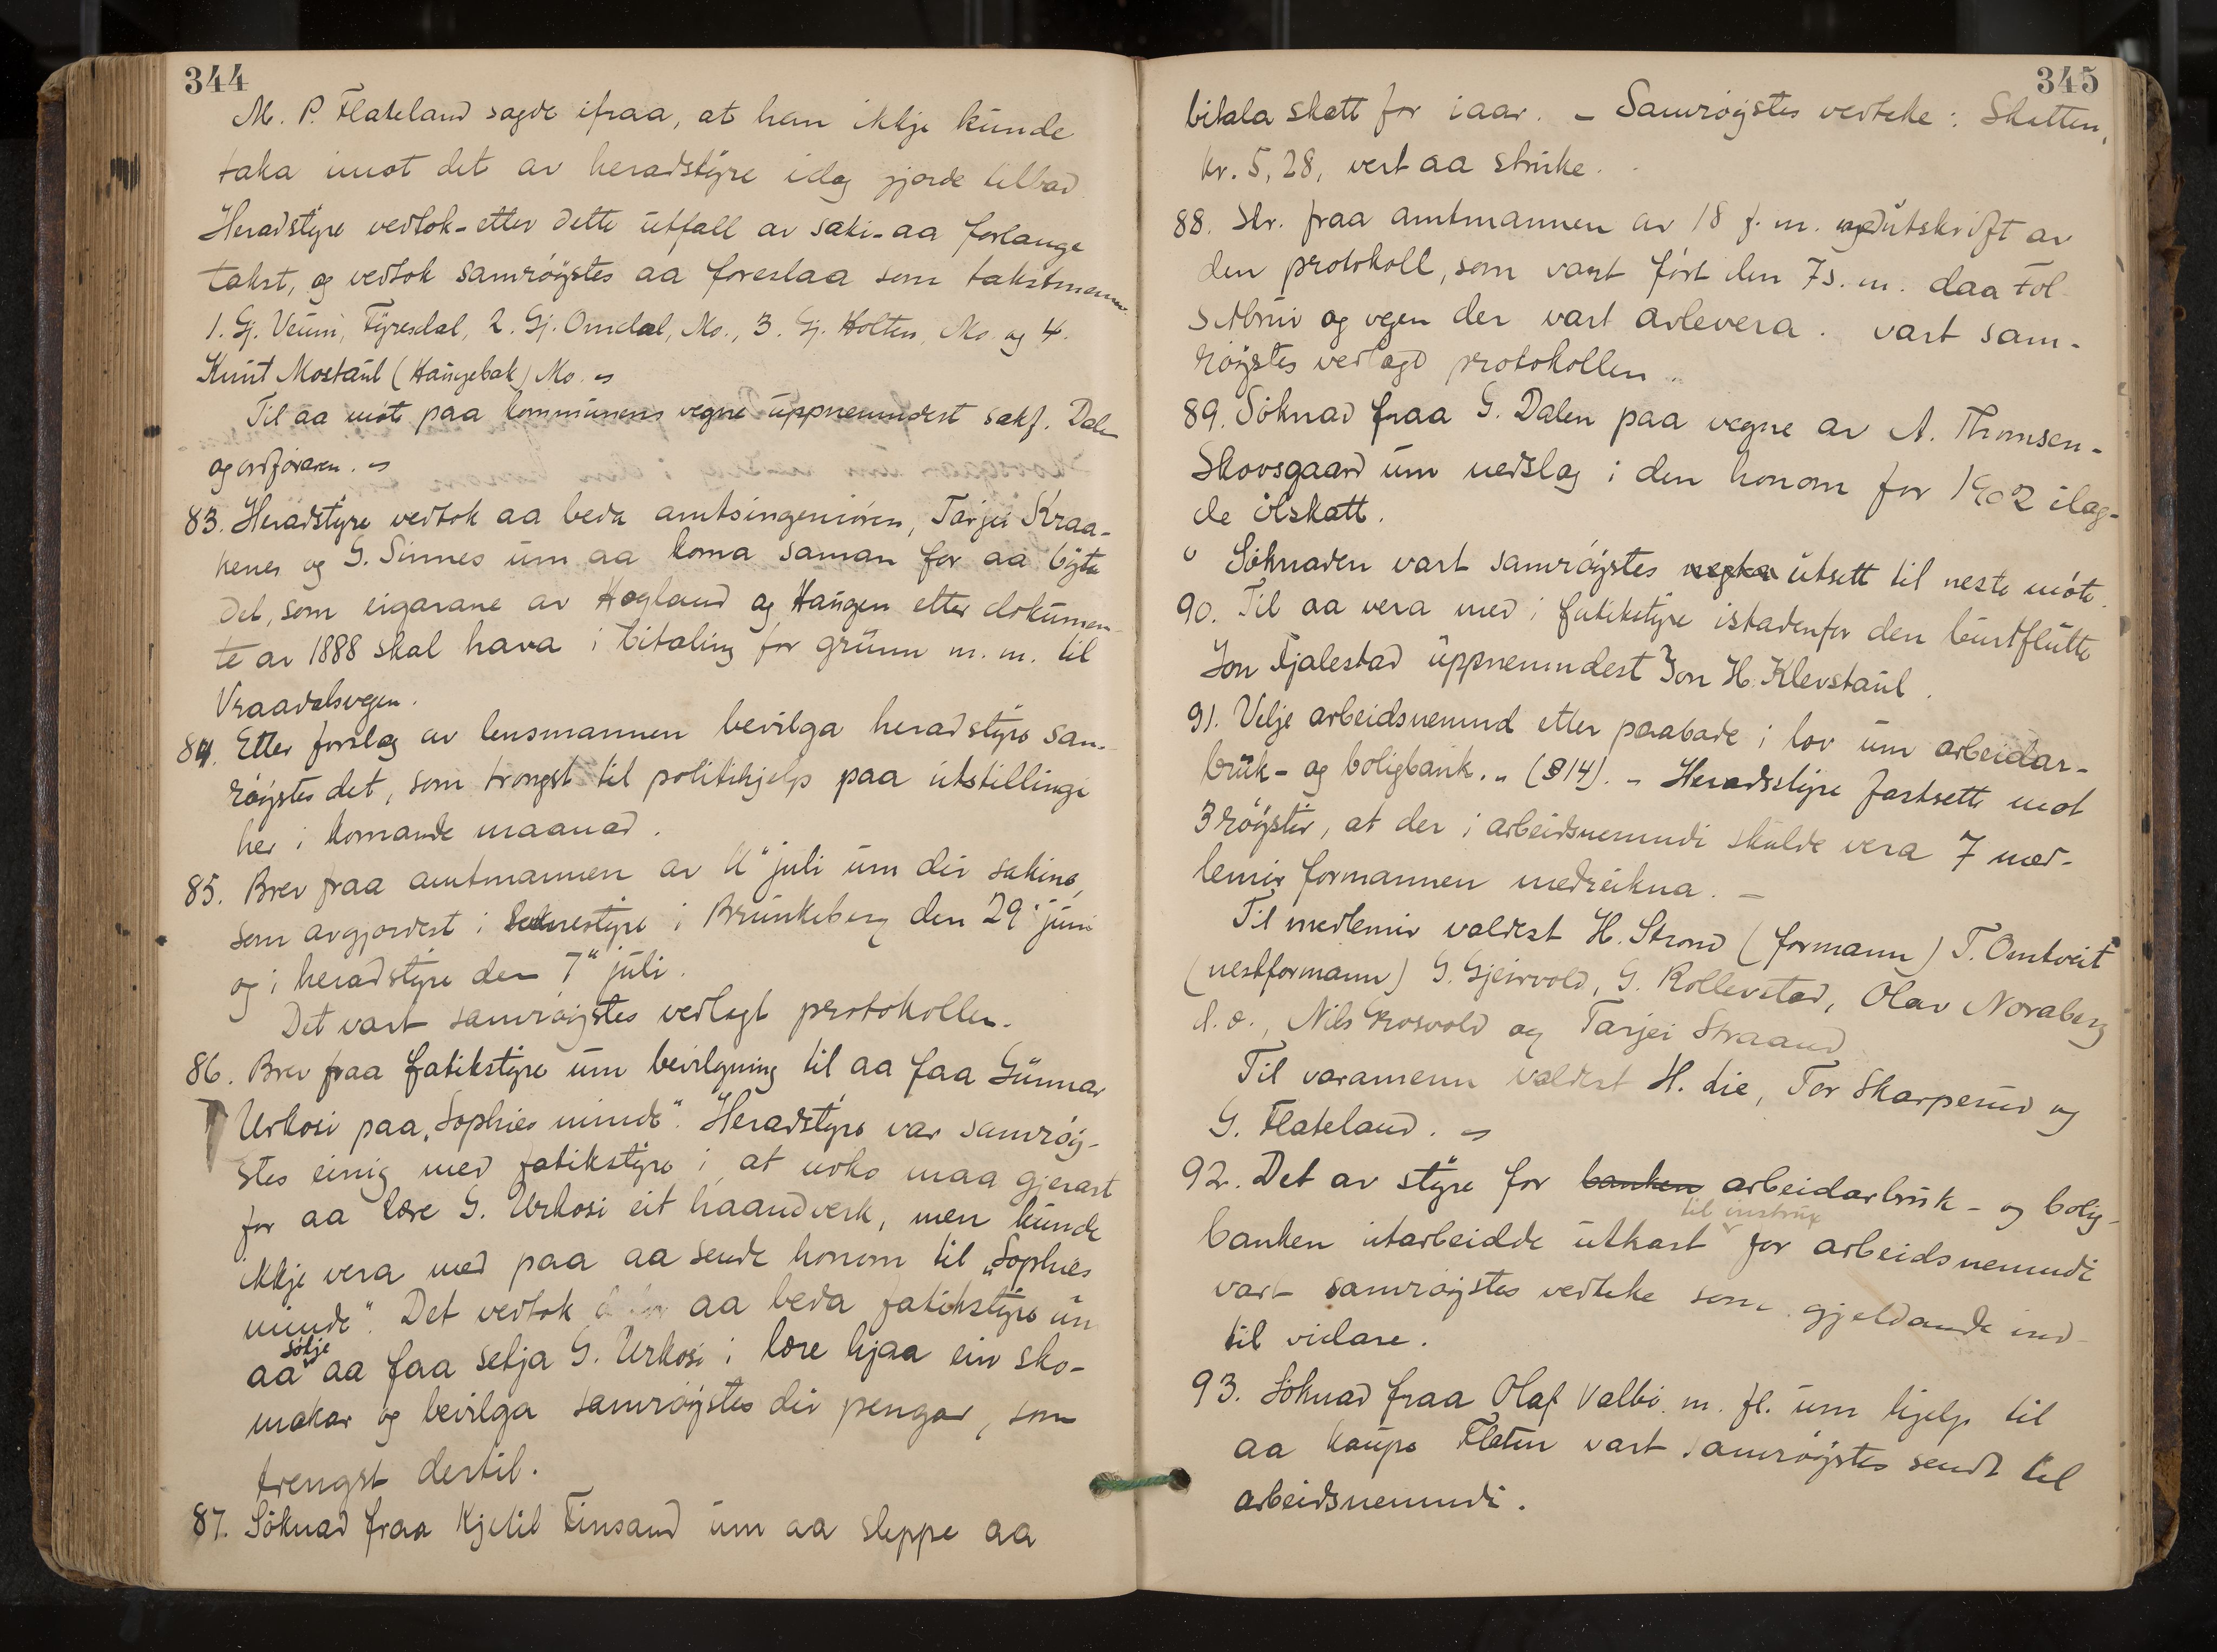 344
M. P. Flateland sagde ifraa, at han ikkje kunde
taka imot det av heradstyre idag gjorde tilbod
Heradstyre vedtok - etter dette utfall av saki - aa forlange
takst, og vedtok samröystes aa foreslaa som takstmenner
1. Gj. Veum, Fyresdal, 2. Gj. Omdal, Mo., 3. Gj. Holten, Mo. og 4.
Knut Mostaul (Haugebak) Mo. -
Til aa möte paa kommunens vegne uppnemndest sakf. Dalen
og ordföraren. -
83. Heradstyre vedtok aa beda amtsingeniören, Tarjei Kraa-
kenes og G. Sinnes um aa koma saman for aa byta
det, som eigarane av Hogland og Haugen etter dokumen-
te av 1888 skal hava i bitaling for grunn m. m. til
Vraadalsvegen.
84. Etter forslag av lensmannen bevilga heradstyre sam-
röystes det, som trongst til politihjelp paa utstillingi
her i komande maanad.
85. Brev fraa amtmannen av 11" juli um dei sakine,
som avgjordest i soknestyre i Brunkeberg den 29" juni
og i heradstyre den 7" juli.
Det vart samröystes vedlagt protokollen.
86. Brev fraa fatikstyre um bevilgning til aa faa Gunnar
Urkosi paa „Sophies minde". Heradstyre var samröy-
stes einig med fatikstyre i at noko maa gjerast
for aa lære G. Urkosi eit haandverk, men kunde
ikkje vera med paa aa sende honom til „Sophies
minde". Det vedtok aa beda fatikstyre um
aa sökje aa faa setja G. Urkosi i lære hjaa ein sko-
makar og bevilga samröystes dei pengar, som
trengst dertil.
87. Söknad fraa Kjetil Finsand um aa sleppe aa
345
bitala skatt for iaar. - Samröystes vedteke: Skatten,
kr. 5,28, vert aa strike.
88. Skr. fraa amtmannen av 18 f. m. med utskrift av
den protokoll, som vart fört den 7 s. m. daa Fol
sæbrui og vegen der vart avlevera. vart sam-
röystes vedlagd protokollen.
89. Söknad fraa G. Dalen paa vegne av A. Thomsen-
Skovsgaard um nedslag i den honom for 1902 ilag-
de ölskatt.
Söknaden vart samröystes utsett til neste möte.
90. Til aa vera med i fatikstyre istadenfor den burtflutte
Jon Fjalestad uppnemndest Jon H. Klevstaul.
91. Velje arbeidsnemnd etter paabode i lov um arbeidar-
bruk- og boligbank. - (§ 14). - Heradstyre fastsette mot
3 röyster, at der i arbeidsnemndi skulde vera 7 med-
lemir formannen medreikna. -
Til medlemir valdest H. Strond (formann) T. Omtveit
(nestformann) G. Gjeirvold, G. Rollevstad, Olav Noraberg
d. e., Nils Rosvold og Tarjei Straand
Til varamenn valdest H. Lie, Tor Skarperud og
G. Flateland. -
92. Det av styre for banken arbeidarbruk- og bolig-
banken utarbeidde utkast til instrux for arbeidsnemndi
vart samröystes vedteke som gjeldande ind-
til vidare.
93. Söknad fraa Olaf Valbö m. fl. um hjelp til
aa kaupe Flaten vart samröystes sendt til
arbeidsnemndi.